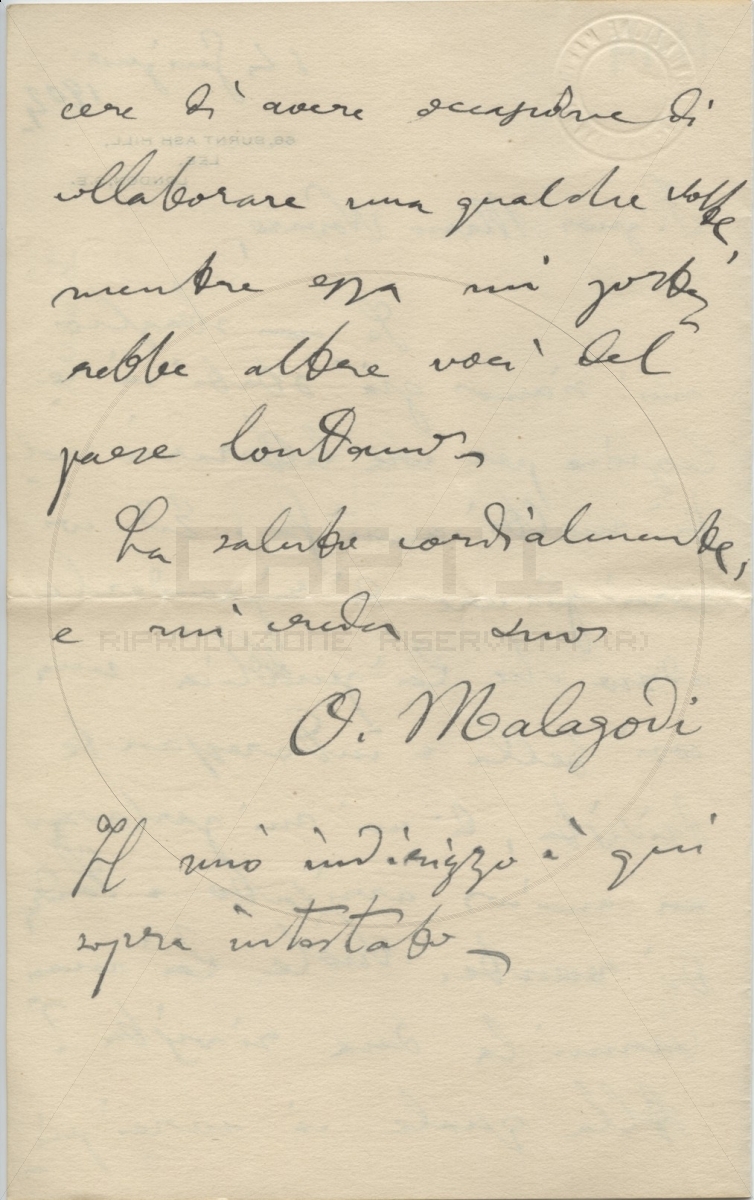 cere di avere occasione di
collaborare una qualche volta,
mentre essa mi porte
rebbe altre voci del
paese lontano.
La saluto cordialmente,
e mi creda suo
O. Malagodi
Il mio indirizzo è qui
sopra intestato.
CRPTI
RIPRODUZIONE RISERVATA (R)
66, BURNT ASH HILL,
LEE,